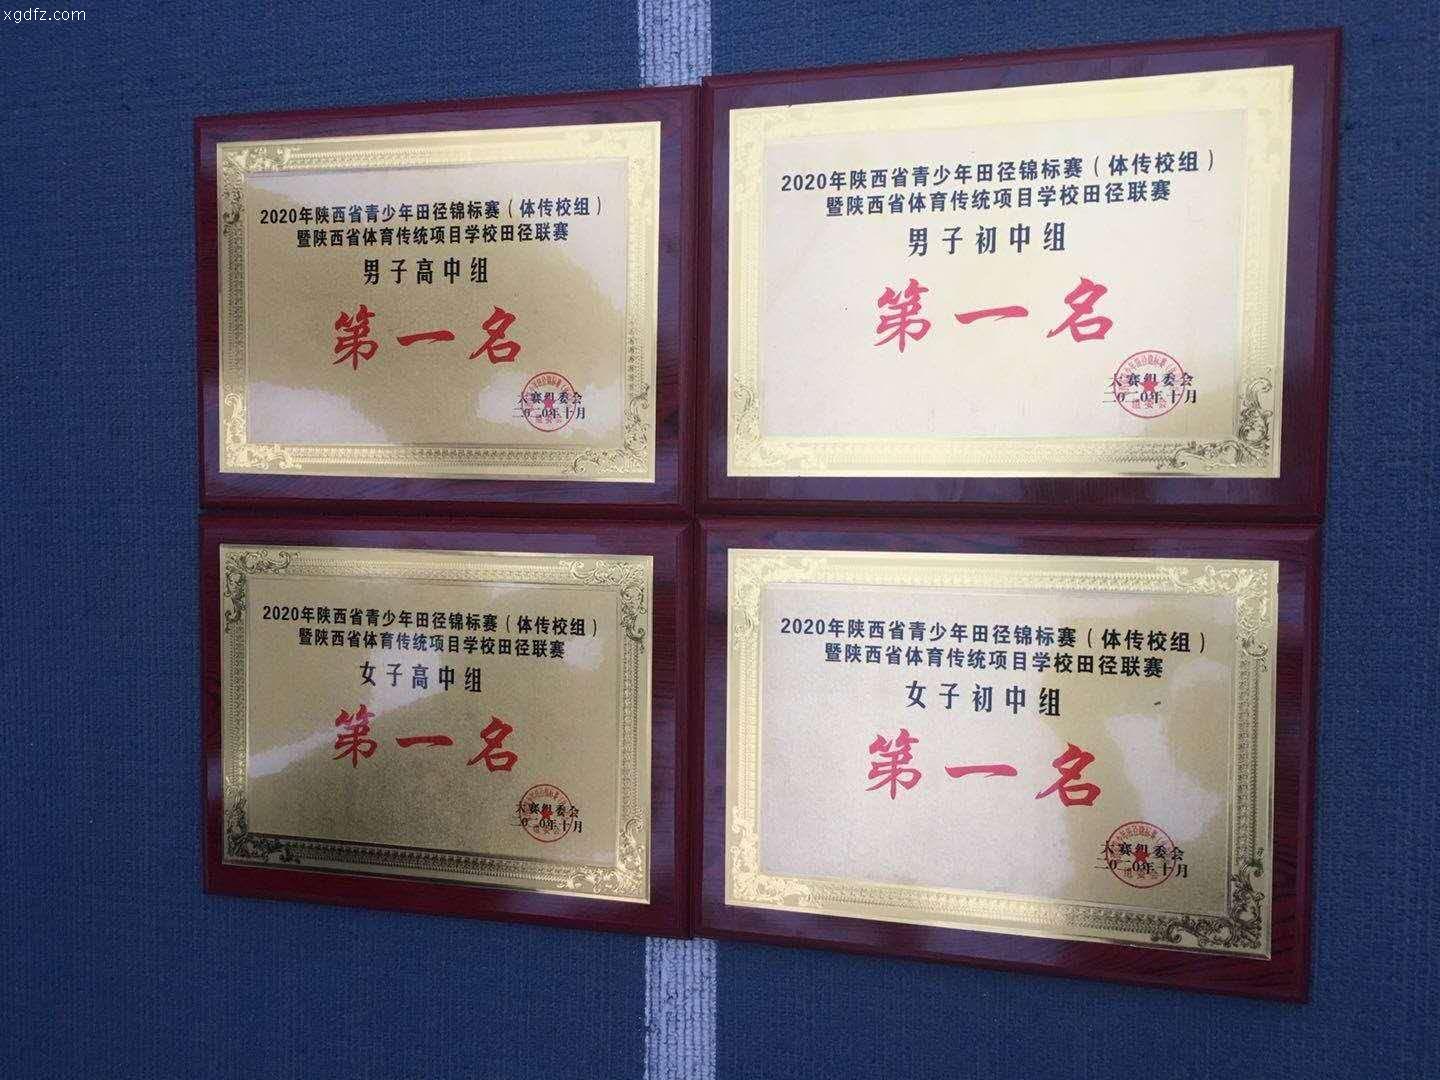 xgdfz.com
2020年陕西省青少年田径锦标赛（体传校组）
暨陕西省体育传统项目学校田径联赛
男子高中组
第一名
大赛组委会
二〇二〇年十月
2020年陕西省青少年田径锦标赛（体传校组）
暨陕西省体育传统项目学校田径联赛
男子初中组
第一名
大赛组委会
二〇二〇年十月
2020年陕西省青少年田径锦标赛（体传校组）
暨陕西省体育传统项目学校田径联赛
女子高中组
第一名
大赛组委会
二〇二〇年十月
2020年陕西省青少年田径锦标赛（体传校组）
暨陕西省体育传统项目学校田径联赛
女子初中组
第一名
大赛组委会
二〇二〇年十月